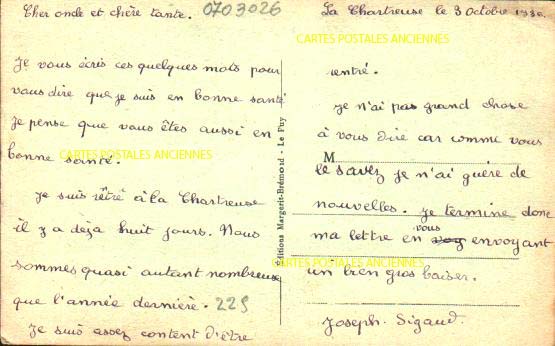 Cher oncle et chère tante. 0703026
Je vous écris ces quelques mots pour
vous dire que je suis en bonne santé
Je pense que vous êtes aussi en
bonne santé.
CARTES POSTALES ANCIENNES
Je suis rétré à la Chartreuse
il y a déja huit jours. Nous
sommes quasi autant nombreuse
que l'année dernière. 225
Je suis assez content d'être
Editions Margerit-Brémond - Le Puy
La Chartreuse le 3 Octobre 1930.
CARTES POSTALES ANCIENNES
rentré.
Je n'ai pas grand chose
à vous dire car comme vous
M
le savez je n'ai guère de
nouvelles. Je termine donc
vous
ma lettre en envoyant
CARTES POSTALES ANCIENNES
un bien gros baiser.
Joseph. Sigaud.